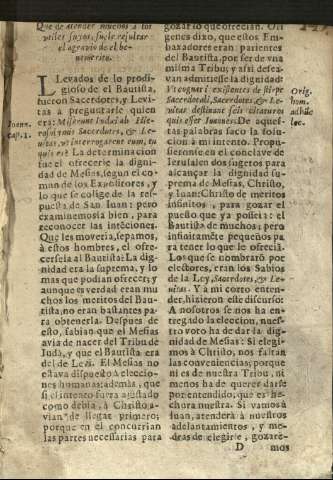 Que de atender muchos a los
utiles suyos, suele resultar
el agravio de el be-
nemerito.
LLevados de lo prodi-
gioso de el Bautista,
fueron Sacerdotes, y Levi-
tas a preguntarle quien
era: Miserunt Iudæi ab Hie-
rosolymis Sacerdotes, & Le-
vitas, ut interrogarent eum, tu
quis es? La determinacion
fue el ofrecerle la digni-
dad de Mesias, segun el co-
mun de los Expositores, y
lo que se colige de la res-
puesta de San Iuan: pero
examinemosla bien, para
reconocer las inteciones.
Que les moveria, sepamos,
à estos hombres, el ofre-
cersela al Bautista? La dig-
nidad era la suprema, y lo
mas que podian ofrecer; y
aunque es verdad eran mu-
chos los meritos del Bau-
tista, no eran bastantes pa-
ra obtenerla. Despues de
esto, sabian que el Mesias
avia de nacer del Tribu de
Iudà, y que el Bautista era
del de Levi. El Mesias no
estava dispuesto à eleccio-
nes humanas; ademàs, que
si el intento fuera ajustado
como debia, à Christo a-
vian de llegar primero;
porque en el concurrian
las partes necessarias para
Ioann.
cap. 1.
gozar lo que ofrecian. Ori-
genes dizo, que estos Em-
baxadores eran parientes
del Bautista, por ser de vna
misma Tribu; y assi desea-
van admitiesse la dignidad:
Vt cogniti existentes de stirpe
Sacerdotali, Sacerdotes & Le-
vitæ
quis esset Ioannes. De aques-
tas palabras saco la solu-
cion a mi intento. Propu-
sieronse en el conclave de
Ierusalen dos sugetos para
alcançar la dignidad su-
prema de Mesias, Christo,
y Iuan: Christo de meritos
infinitos, para gozar el
puesto que ya poseia: el
Bautista de muchos; pero
infinitamẽte pequeños pa-
ra tener lo que le ofreciã.
Los que se nombrarõ por
electores, eran los Sabios
de la Ley, Sacerdotes, & Le-
vitas. Y a mi corto enten-
der, hizieron este discurso:
A nosotros se nos ha en-
tregado la eleccion, nues-
tro voto ha de dar la dig-
nidad de Mesias: Si elegi-
mos à Christo, nos faltan
las conveniencias; porque
ni es de nuestra Tribu, ni
menos ha de querer darse
por entendido, que es he-
chora nuestra. Si vamos à
Iuan, atenderà à nuestros
adelantamientos, y me-
dras de elegirle, gozare-
D mos
Orig.
hom.
ad hũc
loc.